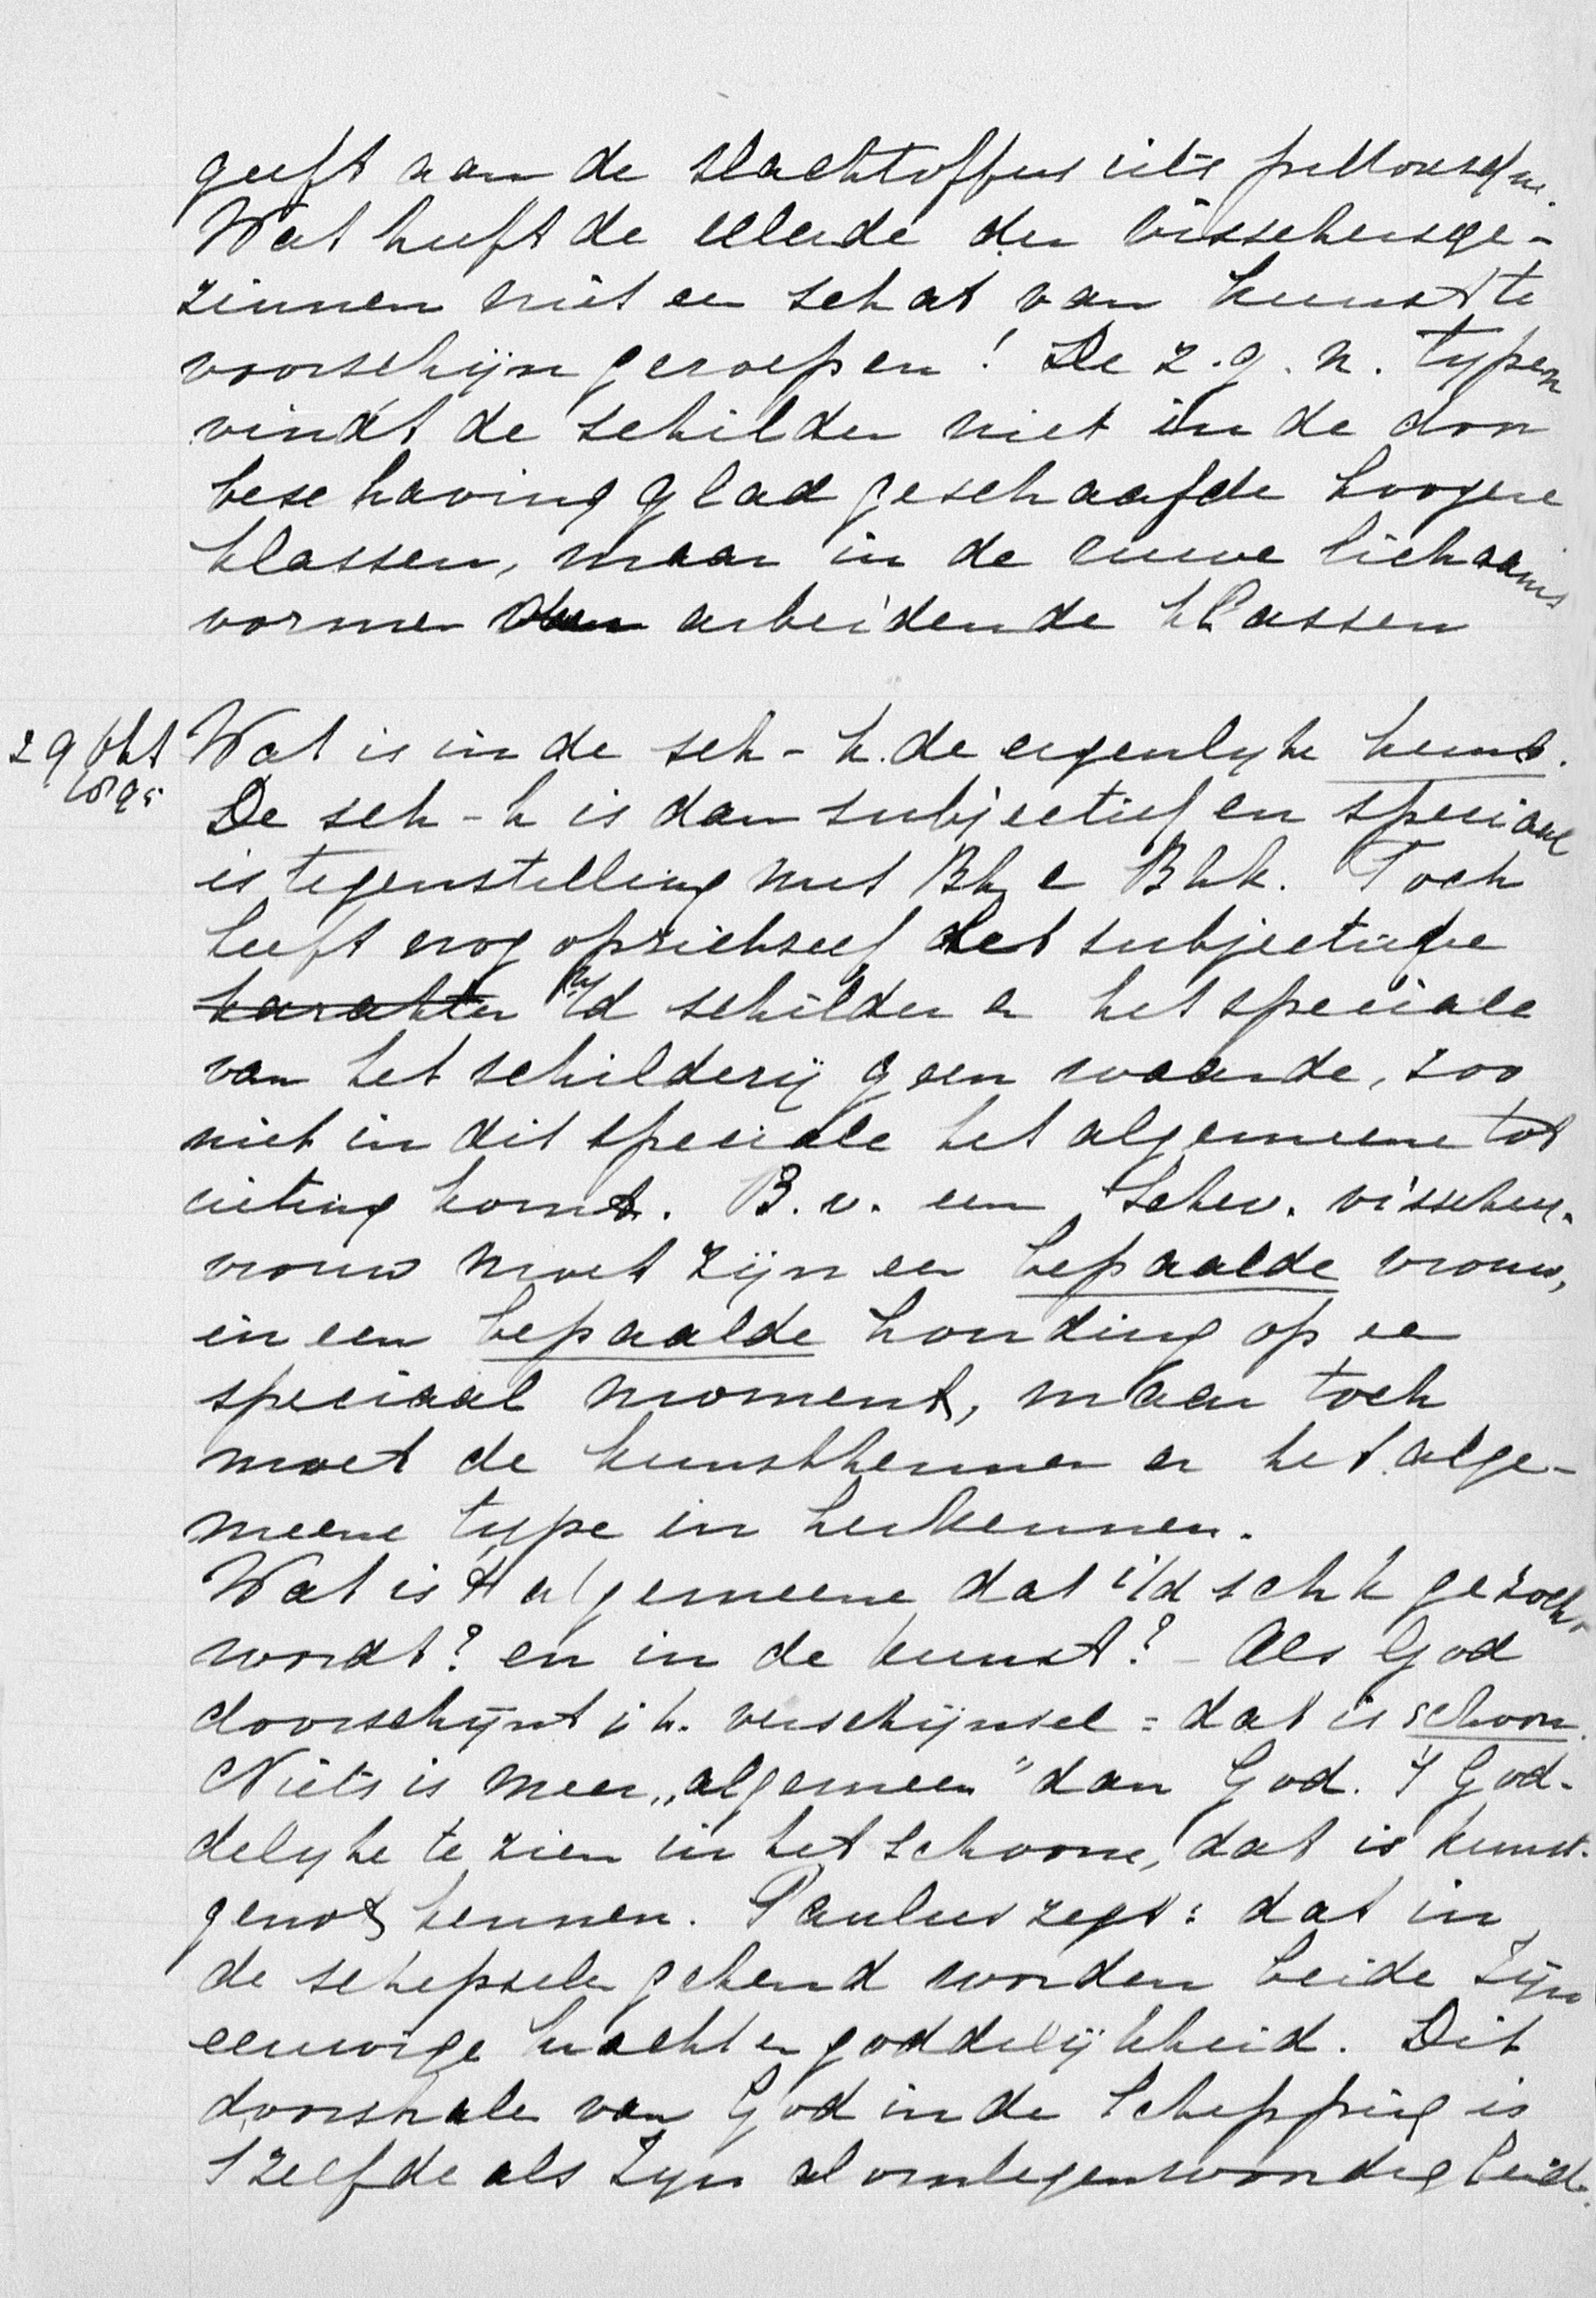 geeft aan de slachtoffers iets pittoresque.
Wat heeft de ellende der visschersge-
zinnen niet een schat van kunst te
voorschijn geroepen! De z.g.n. typen
vindt de schilder niet in de door
beschaving glad geschaafde hoogere
klassen, maar in de ruwe lichaams
vormen der arbeidende klassen
29 Okt Wat is in de sch-k. de eigenlyke kunst.
1895 De sch-k is dan subjectief en speciaal
is tegenstelling met Bk e Bhk. Toch
heeft nog opzichzelf het subjectieve
karakter v/d schilder en het speciale
van het schilderij geen waarde, zoo
niet in dit speciale het algemeene tot
uiting komt. B.v. een Schev. visschers-
vrouw moet zijn een bepaalde vrouw,
in een bepaalde houding op een
speciaal moment, maar toch
moet de kunstkenner er het alge-
meene type in herkennen.
Wat is 't algemeene dat i/d schk gezocht
wordt? en in de kunst? - Als God
doorschijnt i h. verschijnsel = dat is schoon.
Niets is meer „algemeen" dan God. 't God-
delyke te zien in het schoone, dat is kunst-
genot kennen. Paulus zegt: dat in
de schepselen gekend worden beide Zijn
eeuwige kracht en goddelijkheid. Dit
doorstralen van God in de Schepping is
't zelfde als Zijn alomtegenwoordigheid.